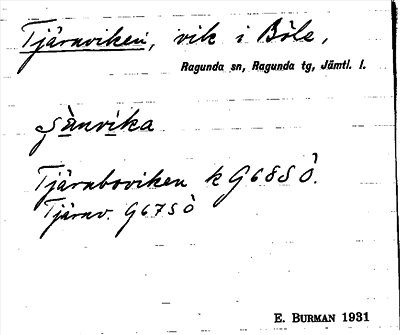 Tjärnviken, vik i Böle,
Ragunda sn, Ragunda tg, Jämtl. l.
Tjärnboviken k G68S Ö.
Tjärnv. G67S Ö
E. BURMAN 1931